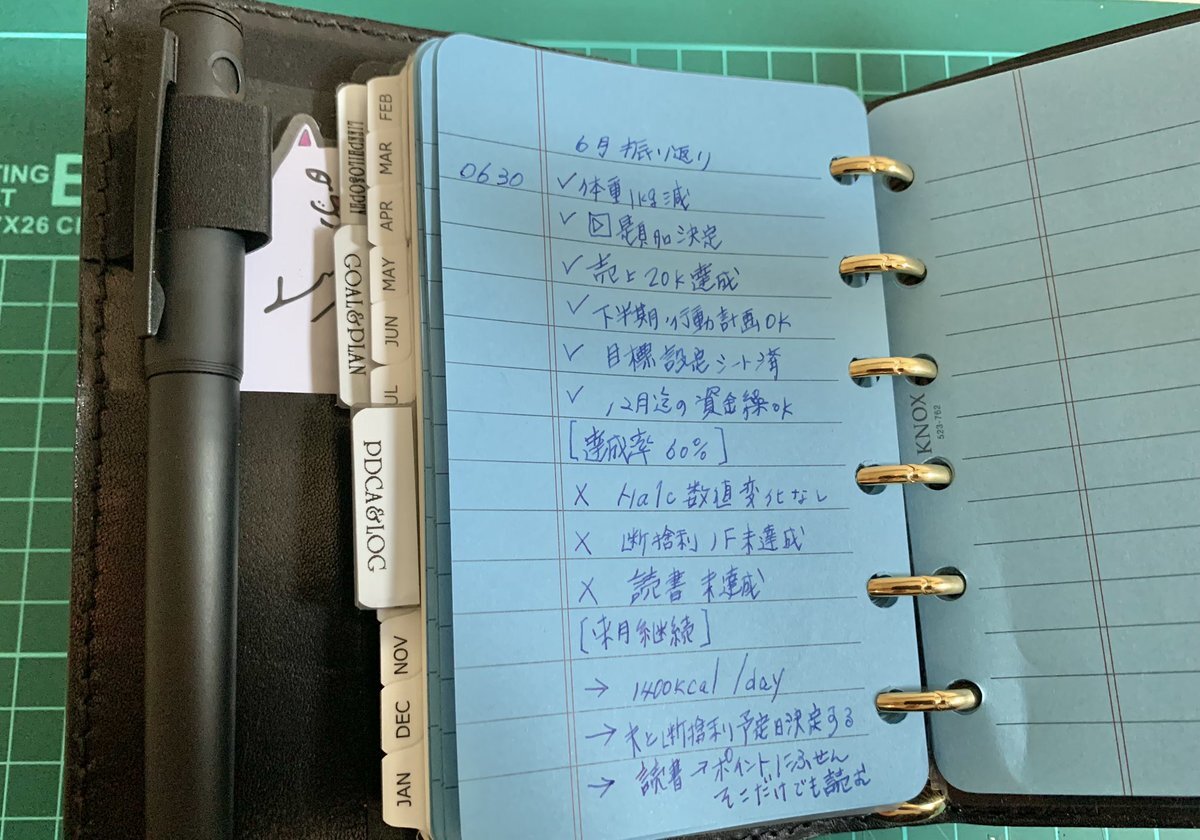 6月 振り返り
0630 ✓体重1kg減
✓ ▷ 決定
✓ 売上20K達成
✓ 下半期行動計画OK
✓ 目標設定シート済
✓ 12月迄の資金繰OK
[達成率 60%]
× Ha1c 数値変化なし
× 断捨利 1F未達成
× 読書 未達成
[来月継続]
→ 1400kcal/day
→ 断捨利予定日決定する
→ 読書→ポイントにふせん
そこだけでも読む
FEB
MAR
APR
MAY
JUN
JUL
NOV
DEC
JAN
GOAL&PLAN
PDCA&LOG
KNOX
523-762